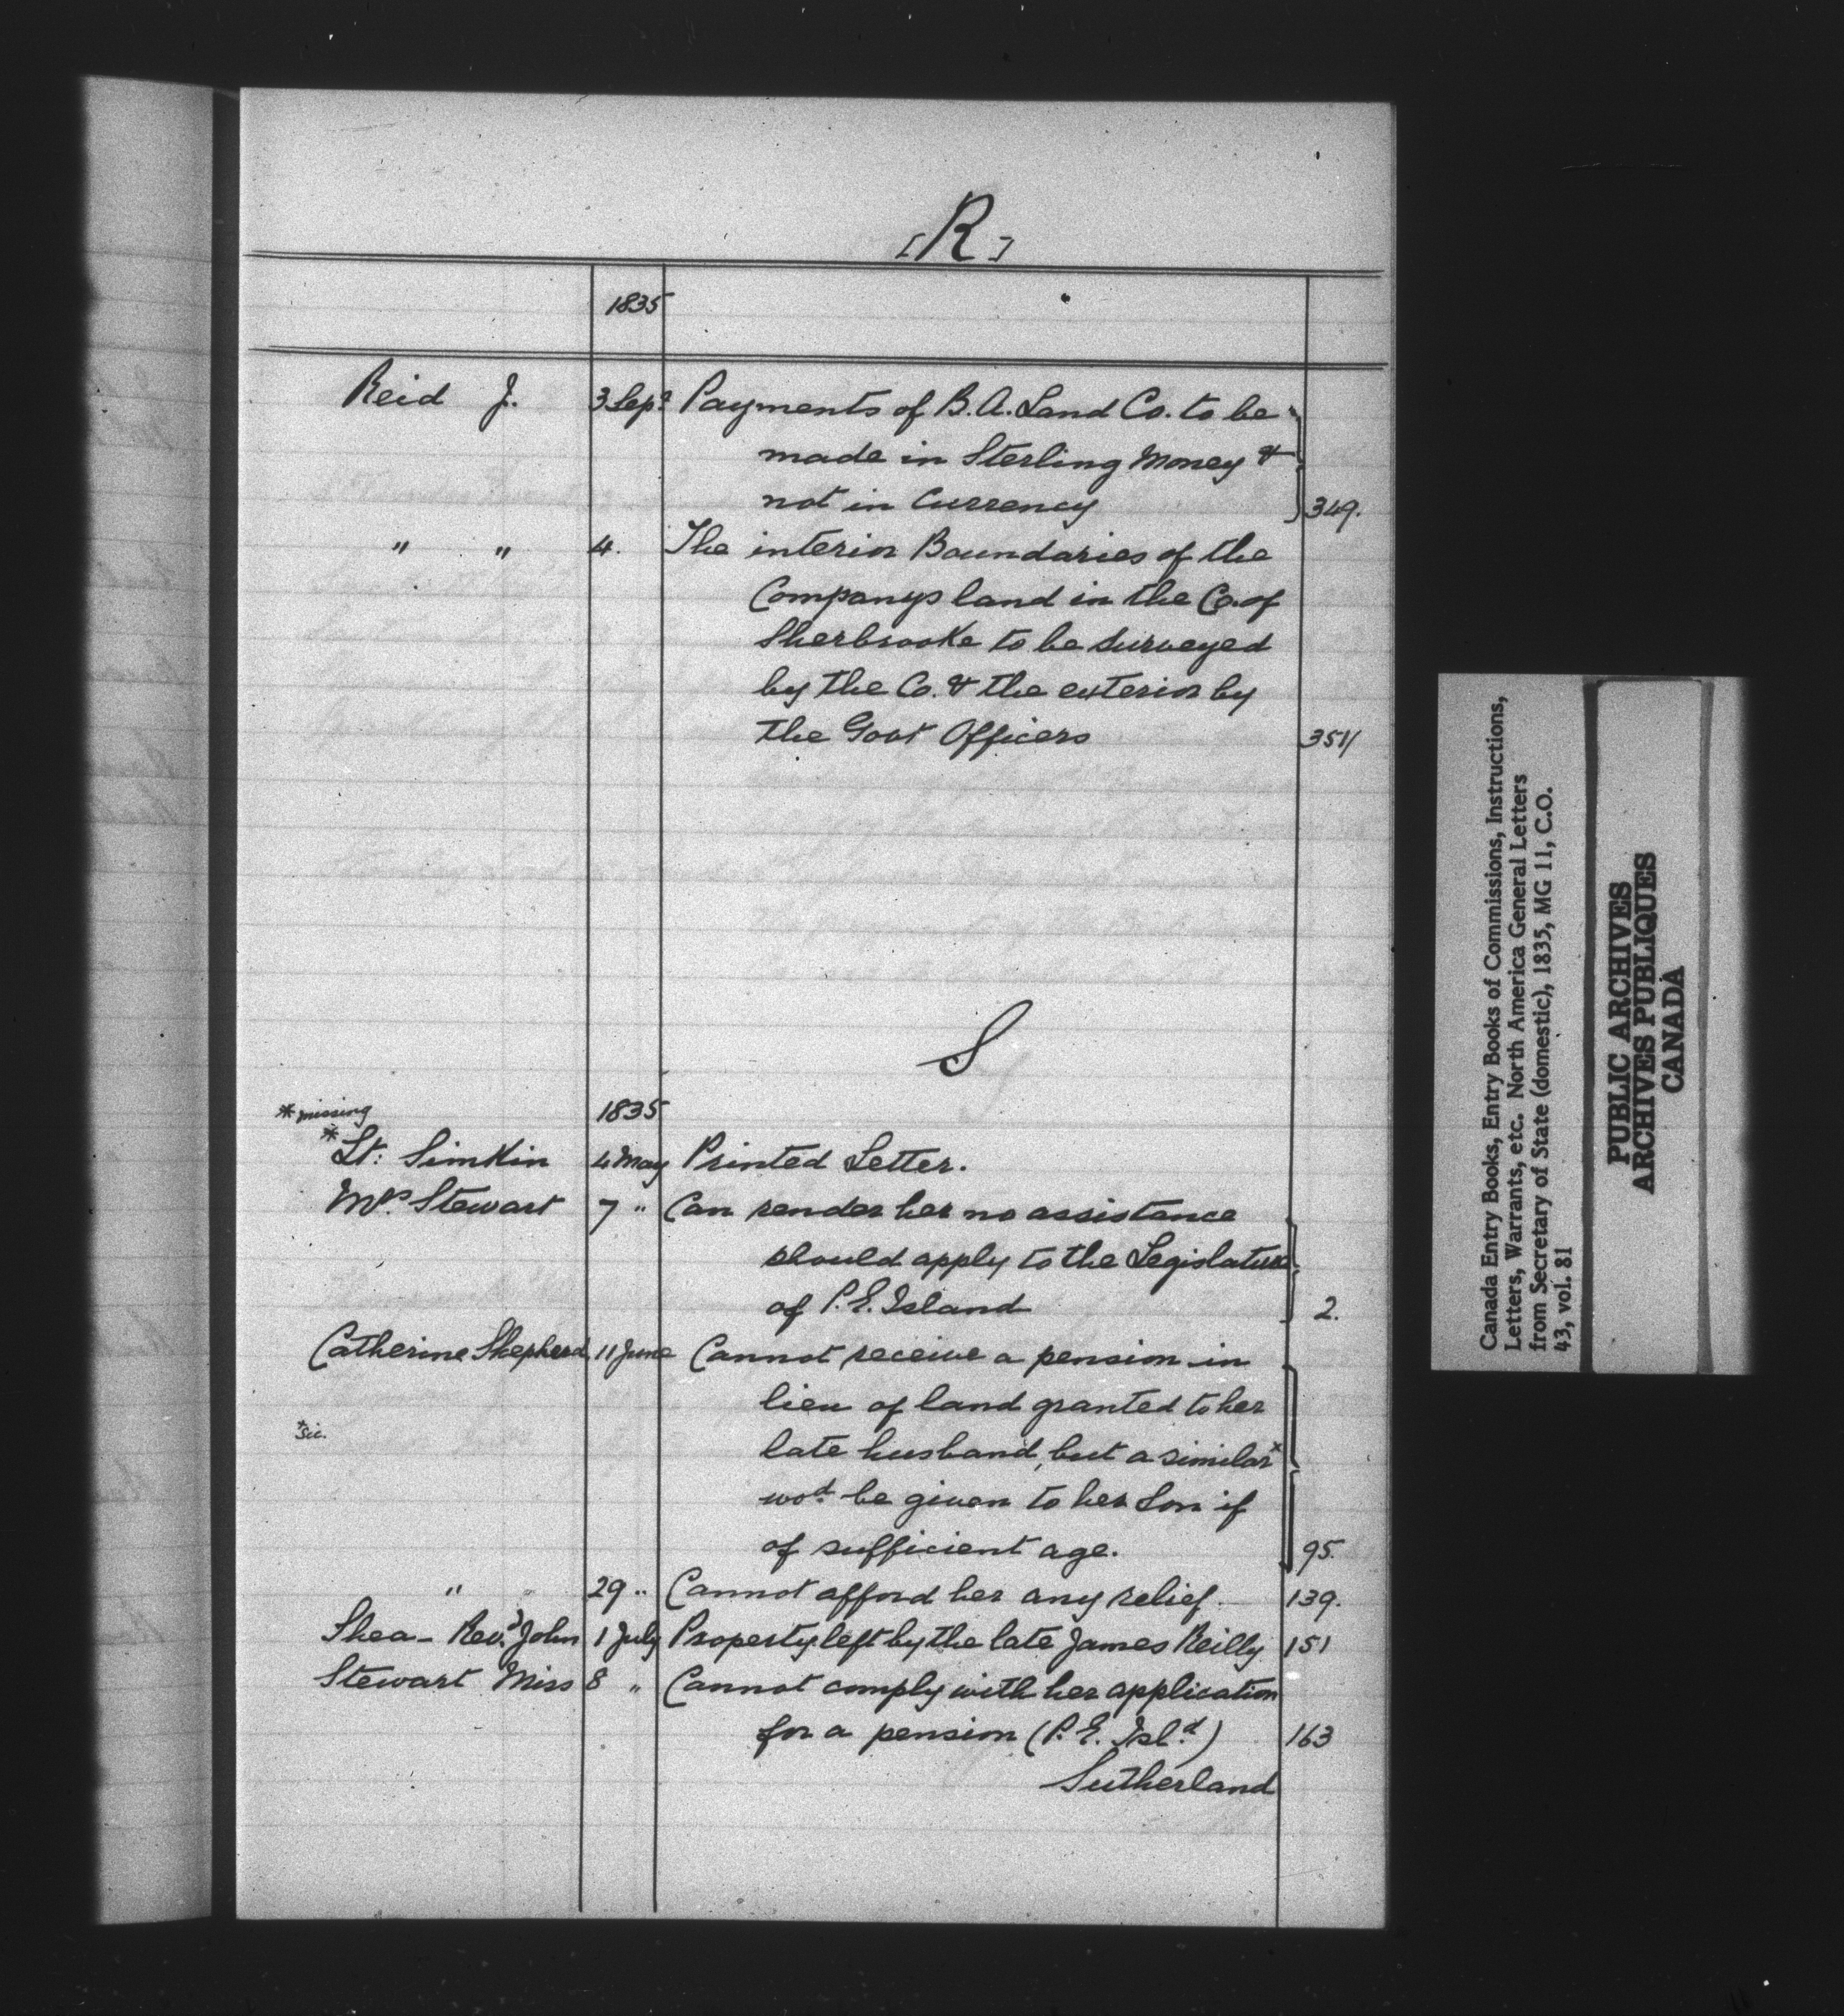 [R]
1835
Reid J. 3 Sepr Payments of B. A. Land Co. to be
made in Sterling Money &
not in Currency 349.
" " 4. The interior Boundaries of the
Companys land in the Co. of
Sherbrooke to be surveyed
by the Co. & the exterior by
the Govt Officers 351/
S
* missing 1835
* Lt: Simkin 4 May Printed Letter.
Mrs Stewart 7 " Can render her no assistance
should apply to the Legislature
of P. E. Island 2.
Catherine Shepherd 11 June Cannot receive a pension in
lieu of land granted to her
* sic. late husband, but a similar *
wod be given to her Son if
of sufficient age. 95.
" 29 " Cannot afford her any relief. 139.
Shea - Revd John 1 July Property left by the late James Reilly 151
Stewart Miss 8 " Cannot comply with her application
for a pension (P. E. Isld) 163
Sutherland
Canada Entry Books, Entry Books of Commissions, Instructions,
Letters, Warrants, etc. North America General Letters
from Secretary of State (domestic), 1835, MG 11, C.O.
43, vol. 81
PUBLIC ARCHIVES
ARCHIVES PUBLIQUES
CANADA